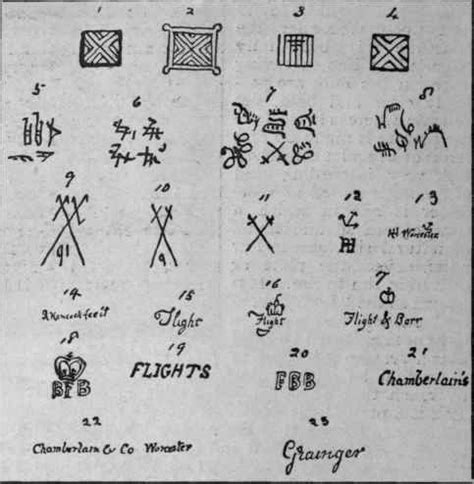 1 2 3 4
5 6 7 8
9 10 11 12 13
91 9 H
RH Worcester
14 15 16 7
R Hancock fecit Flight Flight Flight & Barr
18 19 20 21
BFB FLIGHTS FBB Chamberlain's
22 23
Chamberlain & Co Worcester Grainger